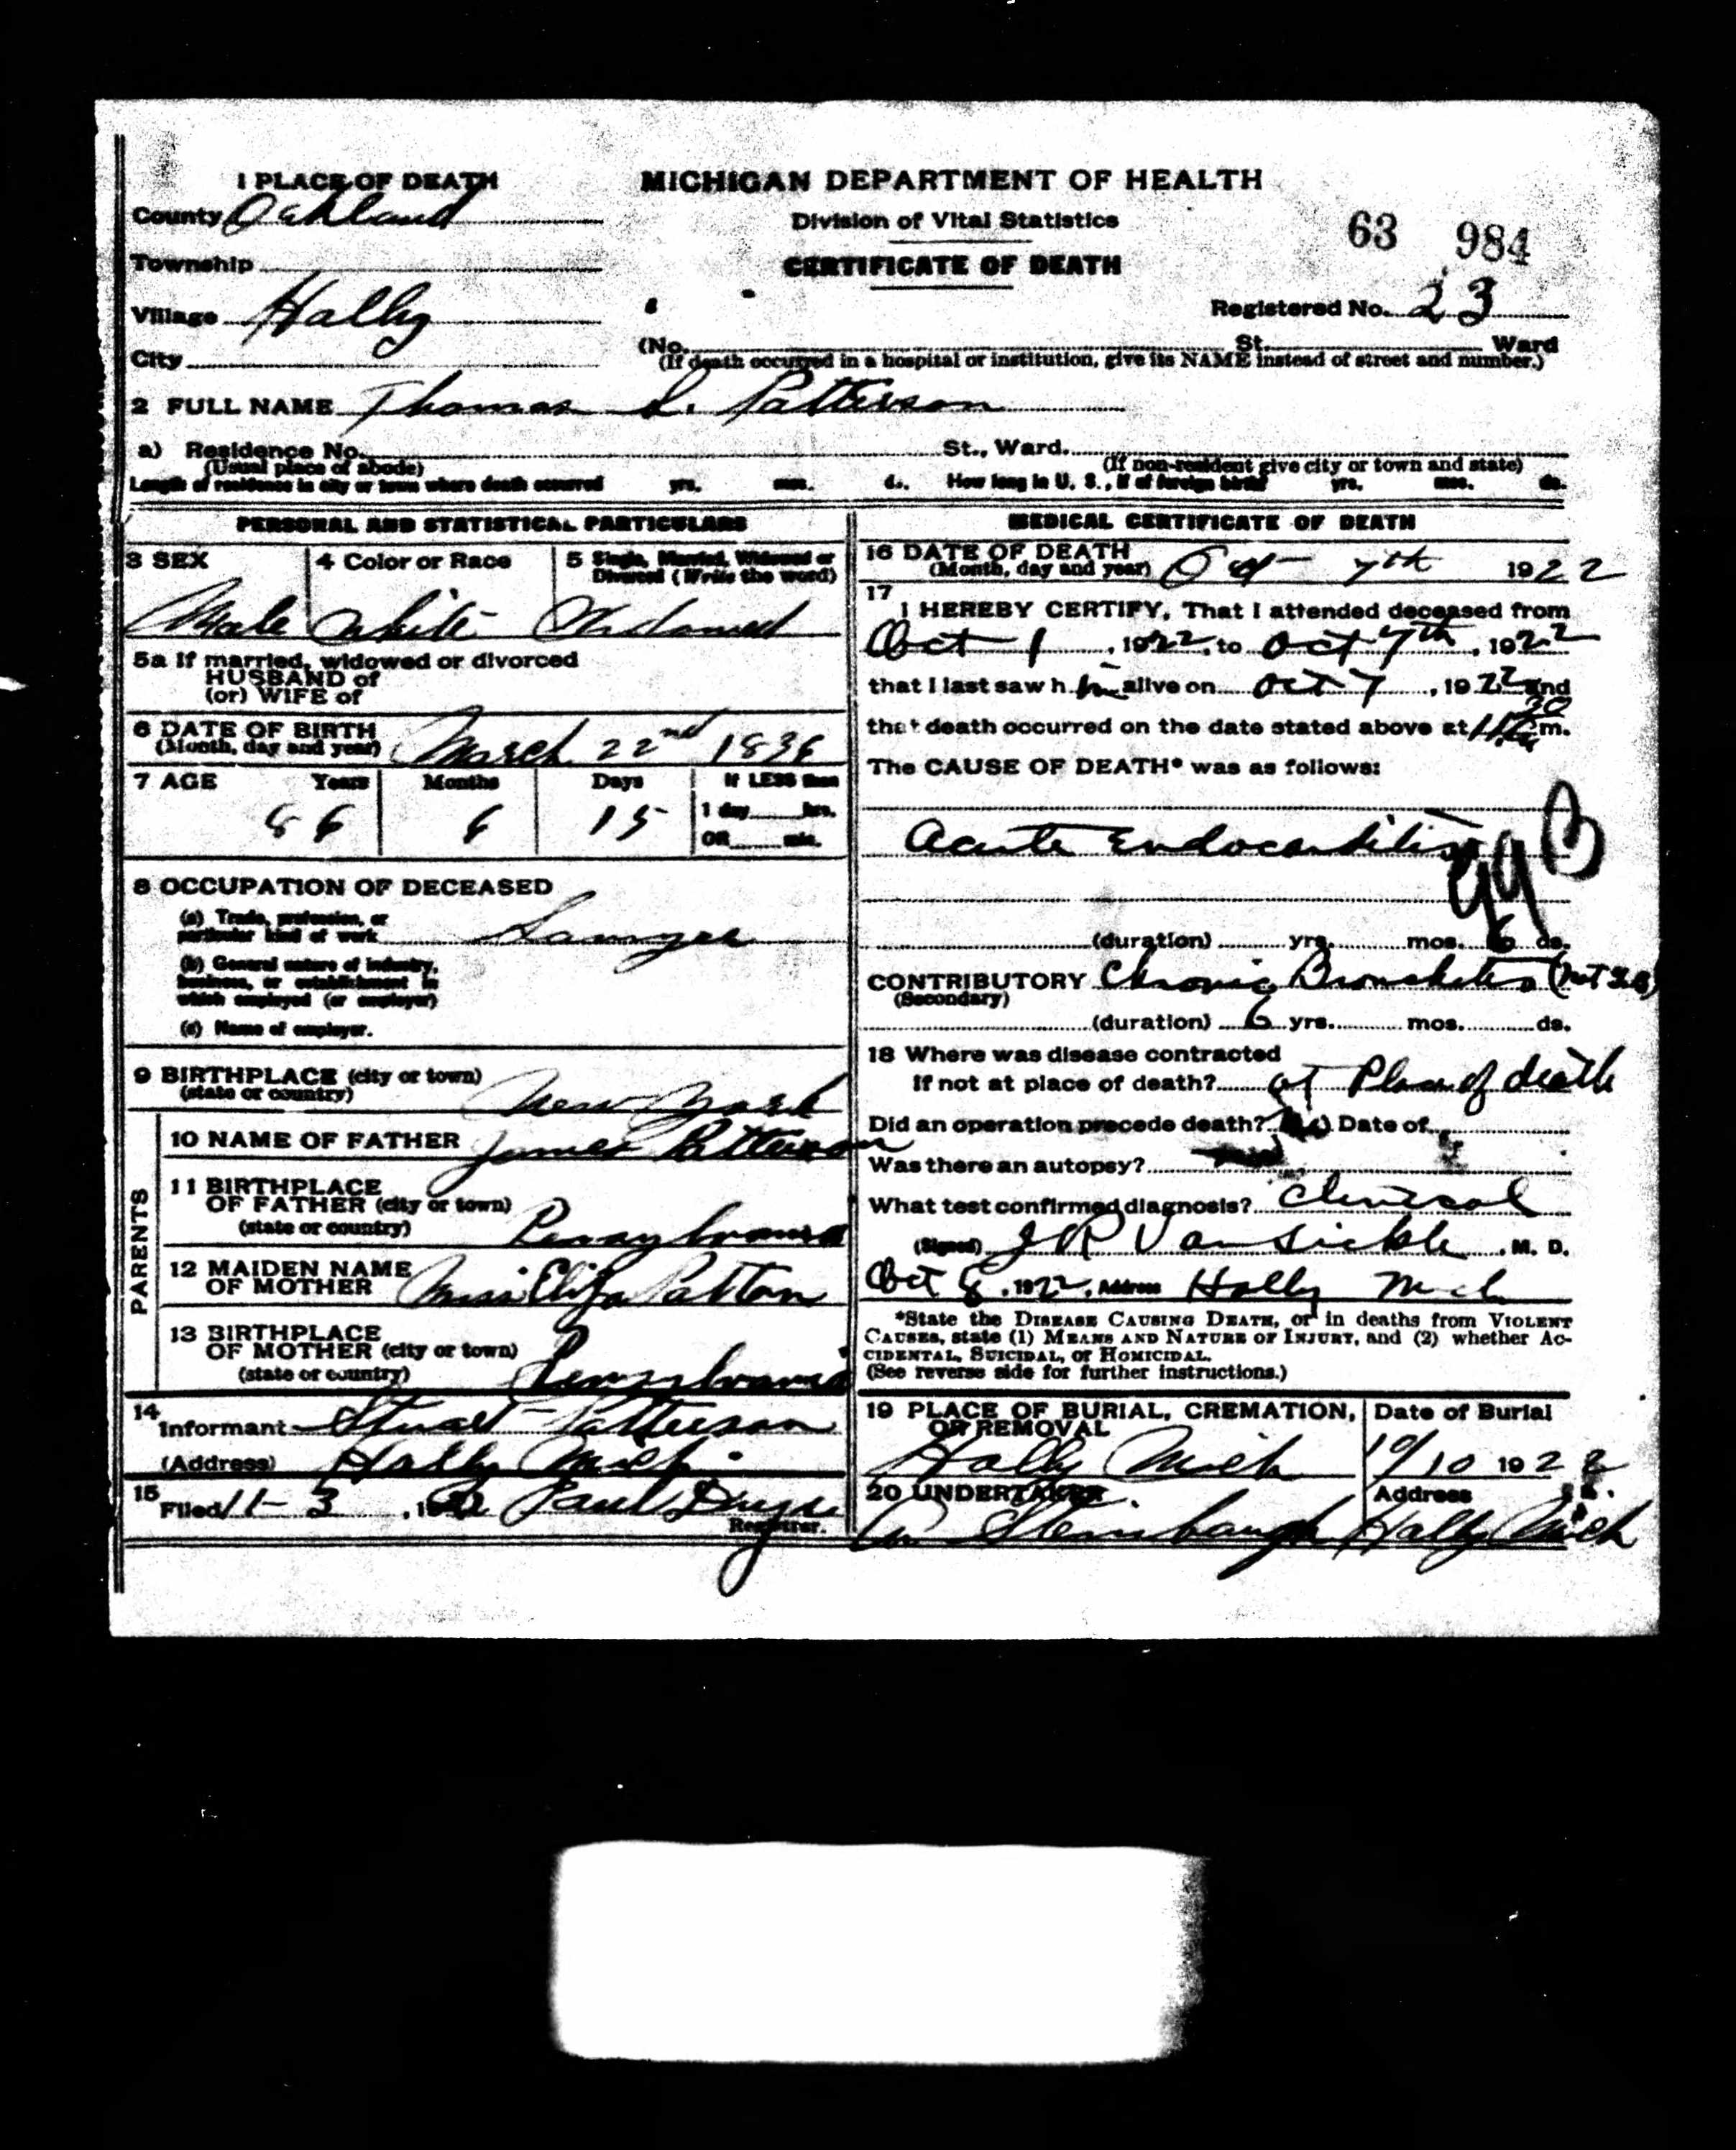 1 PLACE OF DEATH
County Oakland
Township
Village Holly
City
MICHIGAN DEPARTMENT OF HEALTH
Division of Vital Statistics
CERTIFICATE OF DEATH
63 984
Registered No. 23
(No. St. Ward
(If death occurred in a hospital or institution, give its NAME instead of street and number.)
2 FULL NAME Thomas S. Patterson
a) Residence No. St., Ward.
(Usual place of abode) (If non-resident give city or town and state)
Length of residence in city or town where death occurred yrs. mos. ds. How long in U. S., if of foreign birth? yrs. mos. ds.
PERSONAL AND STATISTICAL PARTICULARS
3 SEX 4 Color or Race 5 Single, Married, Widowed or
Divorced (Write the word)
Male White Widowed
5a If married, widowed or divorced
HUSBAND of
(or) WIFE of
6 DATE OF BIRTH
(Month, day and year) March 22nd 1836
7 AGE Years Months Days If LESS than
86 6 15 1 day hrs.
OR min.
8 OCCUPATION OF DECEASED
(a) Trade, profession, or
particular kind of work Lawyer
(b) General nature of industry,
business, or establishment in
which employed (or employer)
(c) Name of employer.
9 BIRTHPLACE (city or town)
(state or country) New York
PARENTS
10 NAME OF FATHER James Patterson
11 BIRTHPLACE
OF FATHER (city or town)
(state or country) Pennsylvania
12 MAIDEN NAME
OF MOTHER Miss Eliza Patton
13 BIRTHPLACE
OF MOTHER (city or town)
(state or country) Pennsylvania
14
Informant Stuart Patterson
(Address) Holly Mich.
15
Filed 11-3, 1922 Paul
Registrar.
MEDICAL CERTIFICATE OF DEATH
16 DATE OF DEATH
(Month, day and year) Oct 7th 1922
17
I HEREBY CERTIFY, That I attended deceased from
Oct 1, 1922, to Oct 7th, 1922
that I last saw him alive on Oct 7, 1922 and
that death occurred on the date stated above at m.
The CAUSE OF DEATH* was as follows:
Acute Endocarditis
(duration) yrs. mos. 6 ds.
CONTRIBUTORY Chronic Bronchitis (not TB)
(Secondary)
(duration) 6 yrs. mos. ds.
18 Where was disease contracted
If not at place of death? at Place of death
Did an operation precede death? No Date of
Was there an autopsy?
What test confirmed diagnosis? Clinical
(Signed) J R VanSickle, M. D.
Oct 8, 1922, Address Holly Mich
*State the DISEASE CAUSING DEATH, or in deaths from VIOLENT
CAUSES, state (1) MEANS AND NATURE OF INJURY, and (2) whether AC-
CIDENTAL, SUICIDAL, or HOMICIDAL.
(See reverse side for further instructions.)
19 PLACE OF BURIAL, CREMATION, Date of Burial
OR REMOVAL
Holly Mich 10/10 1922
20 UNDERTAKER Address
Steinbaugh Holly Mich